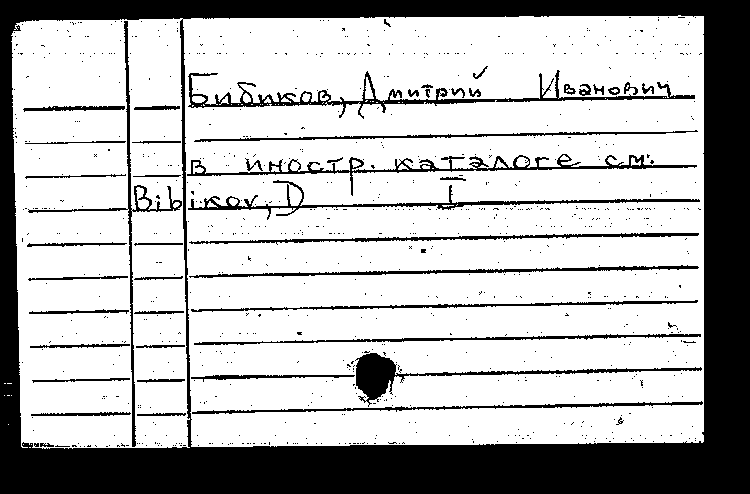 Бибиков, Дмитрий Иванович
в иностр. каталоге см.
Bibikov, D I